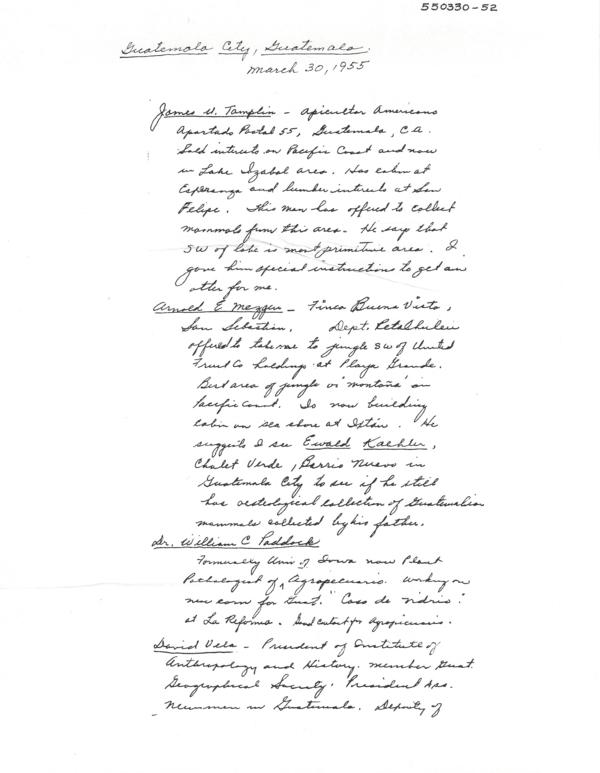 550330-52
Guatemala City, Guatemala.
March 30, 1955
James W. Tamplin - Apicultor Americano
Apartado Postal 55, Guatemala, C.A.
Sold interests on Pacific Coast and now
in Lake Izabal area. Has cabin at
Esperanza and lumber interests at San
Felipe. This man has offered to collect
mammals from this area. He says that
SW of lake is most primitive area. I
gave him special instructions to get an
otter for me.
Arnold E Mezger - Finca Buena Vista,
San Sebastian, Dept. Retalhuleu
offered to take me to jungle SW of United
Fruit Co holdings at Playa Grande.
Best area of jungle or "montaña" on
Pacific Coast. Is now building
cabin on sea shore at Iztán. He
suggests I see Ewald Kaehler,
Chalet Verde, Barrio Nuevo in
Guatemala City to see if he still
has osteological collection of Guatemalan
mammals collected by his father.
Dr. William C Paddock
Formerally Univ of Iowa now Plant
Pathologist of Agropecuario. Working on
new corn for Guat. "Caso de vidrio".
at La Reforma. Good contact for Agropecuario.
David Vela - President of Institute of
Anthropology and History. member Guat.
Geographical Society. President Ass.
Newsmen in Guatemala. Deputy of